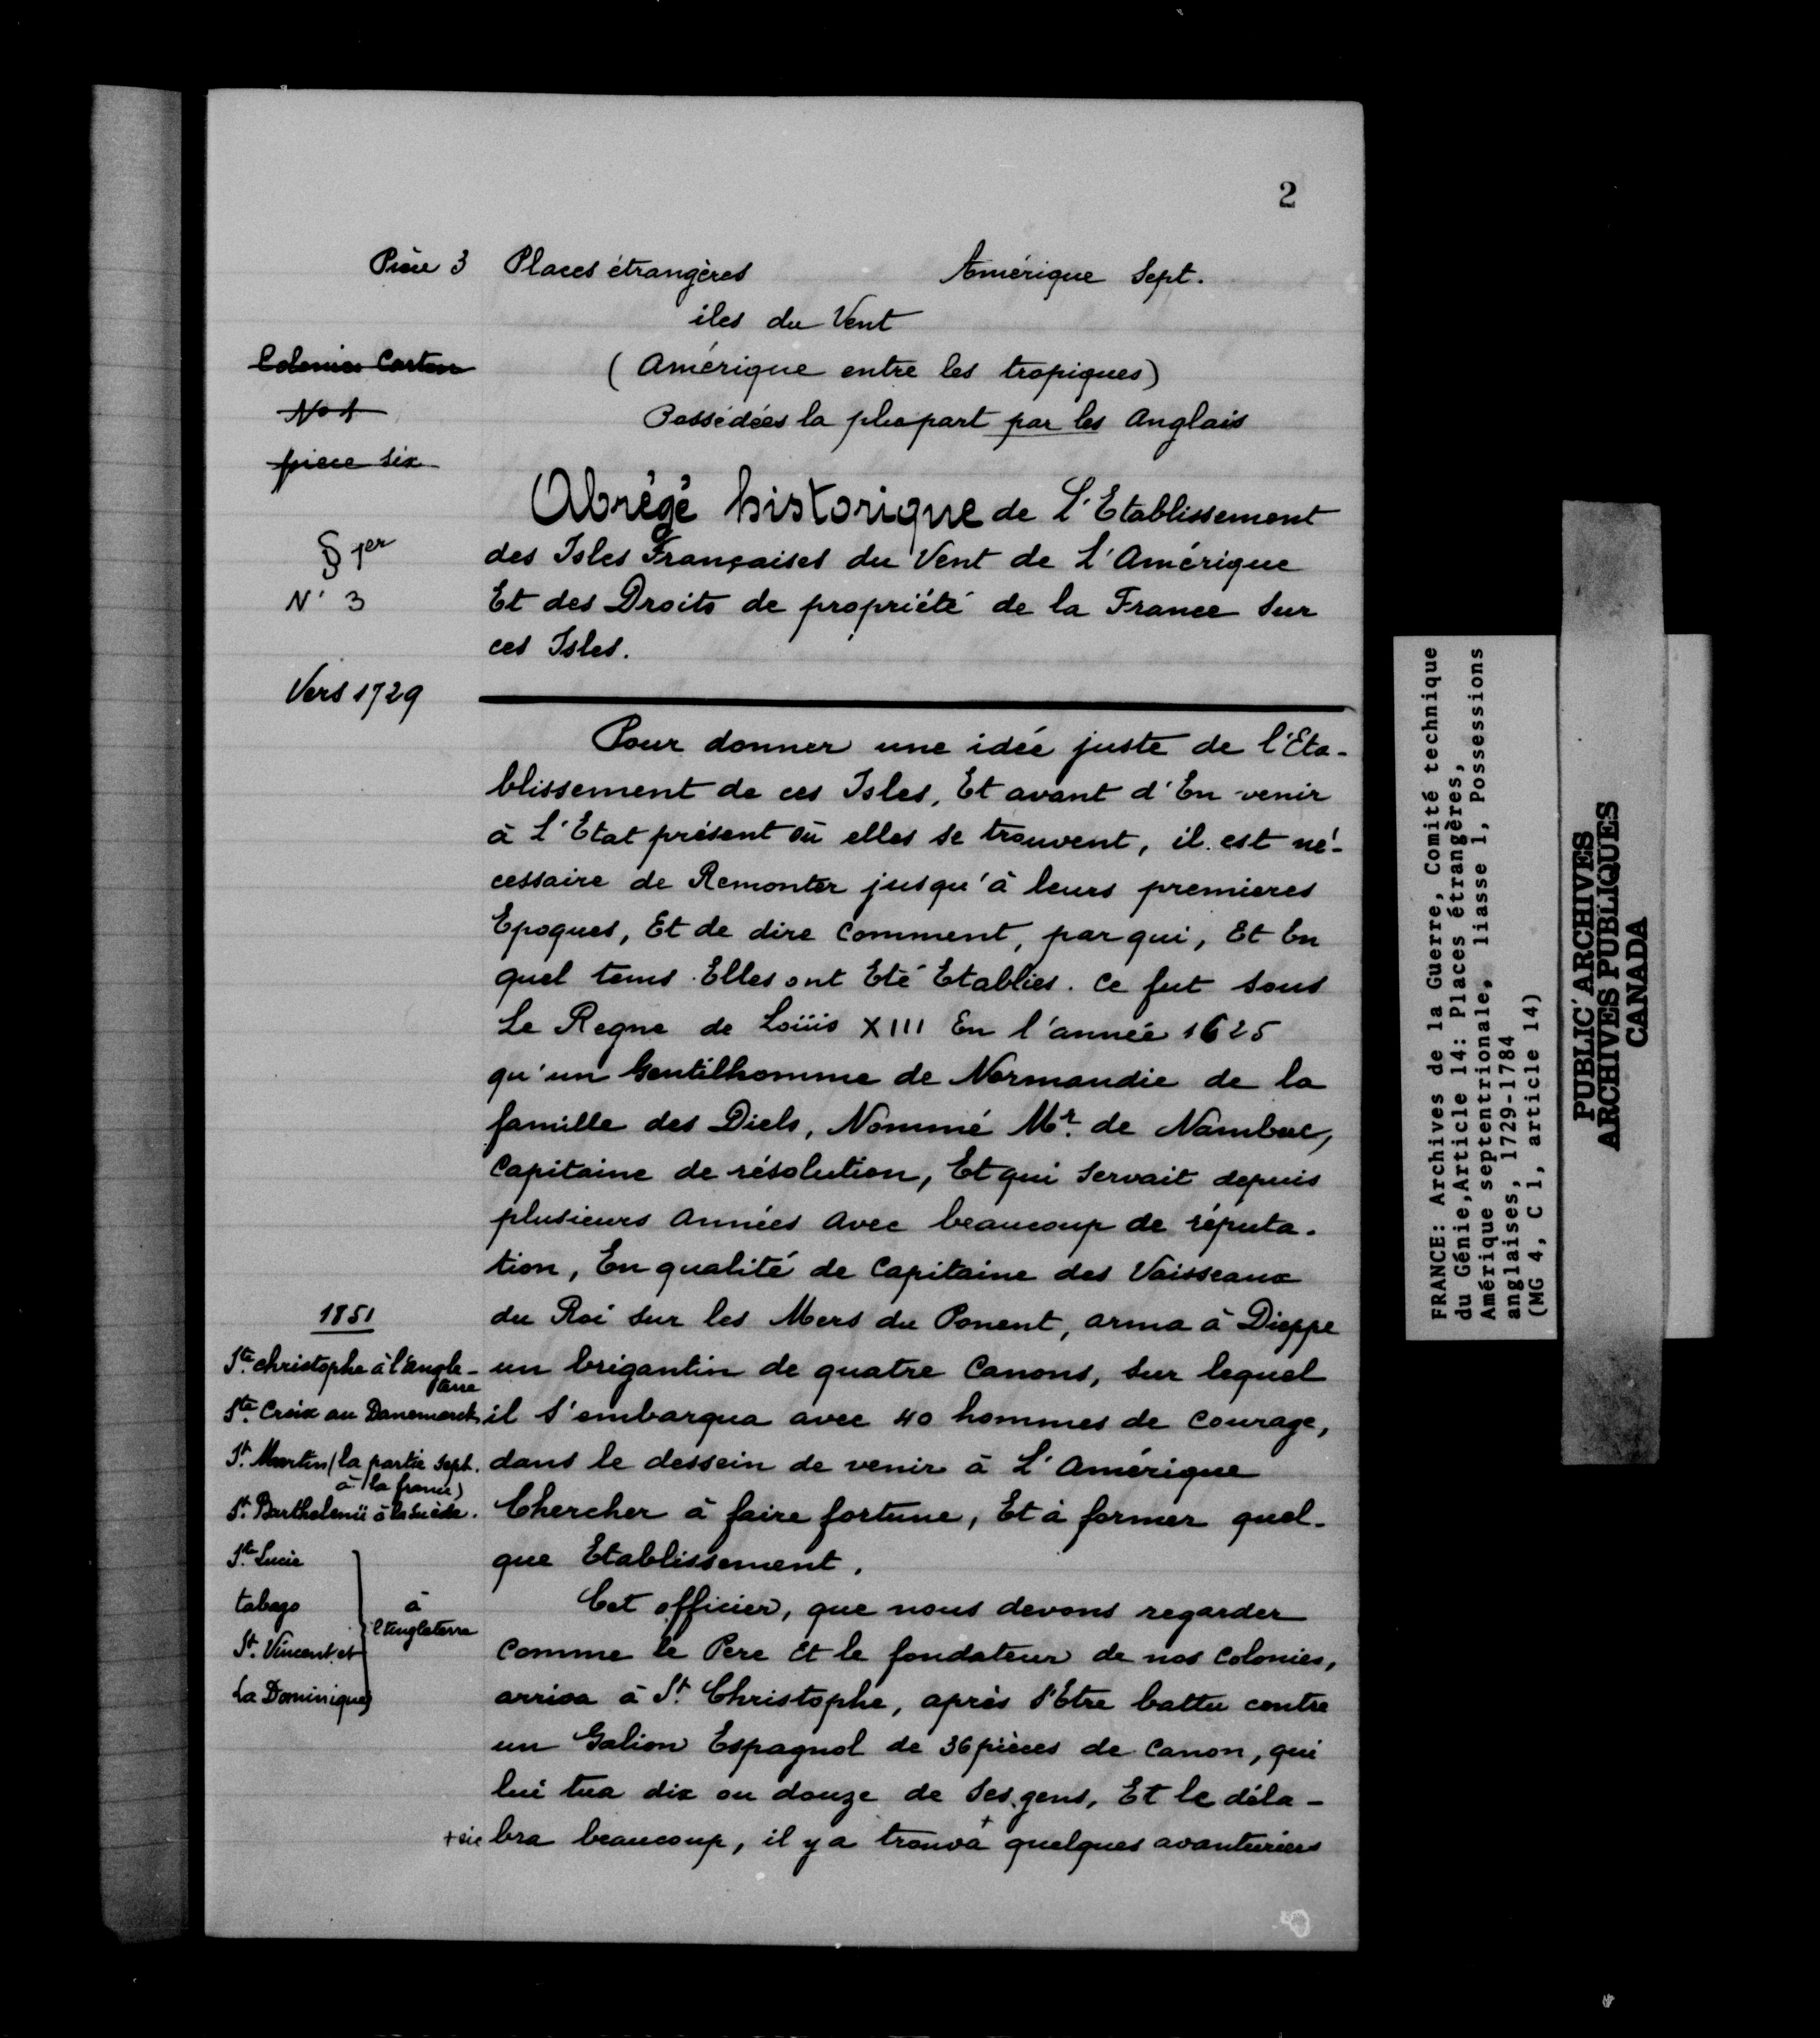 2
Pièce 3 Places étrangères Amérique Sept.
iles du Vent
Colonies Carton
(Amérique entre les tropiques)
No 1
Possédées la plupart par les Anglais
piece six
Abrégé historique de L'Etablissement
§ 1er
des Isles Françaises du Vent de L'Amérique
N° 3
Et des Droits de propriété de la France sur
ces Isles.
Vers 1729
Pour donner une idée juste de l'Eta-
blissement de ces Isles, Et avant d'En venir
à L'Etat présent où elles se trouvent, il est né-
cessaire de Remonter jusqu'à leurs premieres
Epoques, Et de dire comment, par qui, Et En
quel tems Elles ont Eté Etablies. Ce fut sous
Le Regne de Loüis XIII En l'année 1625
qu'un Gentilhomme de Normandie de la
famille des Diels, Nommé Mr. de Nambuc,
Capitaine de résolution, Et qui servait depuis
plusieurs Années Avec beaucoup de réputa-
tion, En qualité de Capitaine des Vaisseaux
du Roi sur les Mers du Ponent, arma à Dieppe
un brigantin de quatre Canons, sur lequel
il s'embarqua avec 40 hommes de courage,
dans le dessein de venir à L'Amérique
Chercher à faire fortune, Et à former quel-
que Etablissement.
1851
Ste. christophe à l'angle-
terre
Ste. Croix au Danemarck
St. Martin (la partie sept.
à la france)
St. Barthelemi à la Suède.
Ste. Lucie
tabago
St. Vincent et
La Dominique
à
l'Angleterre
Cet officier, que nous devons regarder
comme le Pere Et le fondateur de nos colonies,
arriva à St. Christophe, après s'Etre battu contre
un Galion Espagnol de 36 pièces de canon, qui
lui tua dix ou douze de ses gens, Et le déla-
bra beaucoup, il y a trouva + quelques avanturiers
+ sic
FRANCE: Archives de la Guerre, Comité technique
du Génie, Article 14: Places étrangères,
Amérique septentrionale, liasse 1, Possessions
anglaises, 1729-1784
(MG 4, C 1, article 14)
PUBLIC ARCHIVES
ARCHIVES PUBLIQUES
CANADA